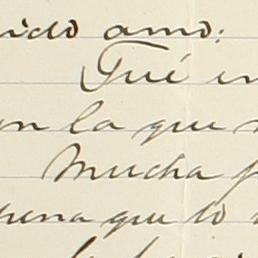 ido amo:
Qué in
en la que
Mucha p
pena que lo